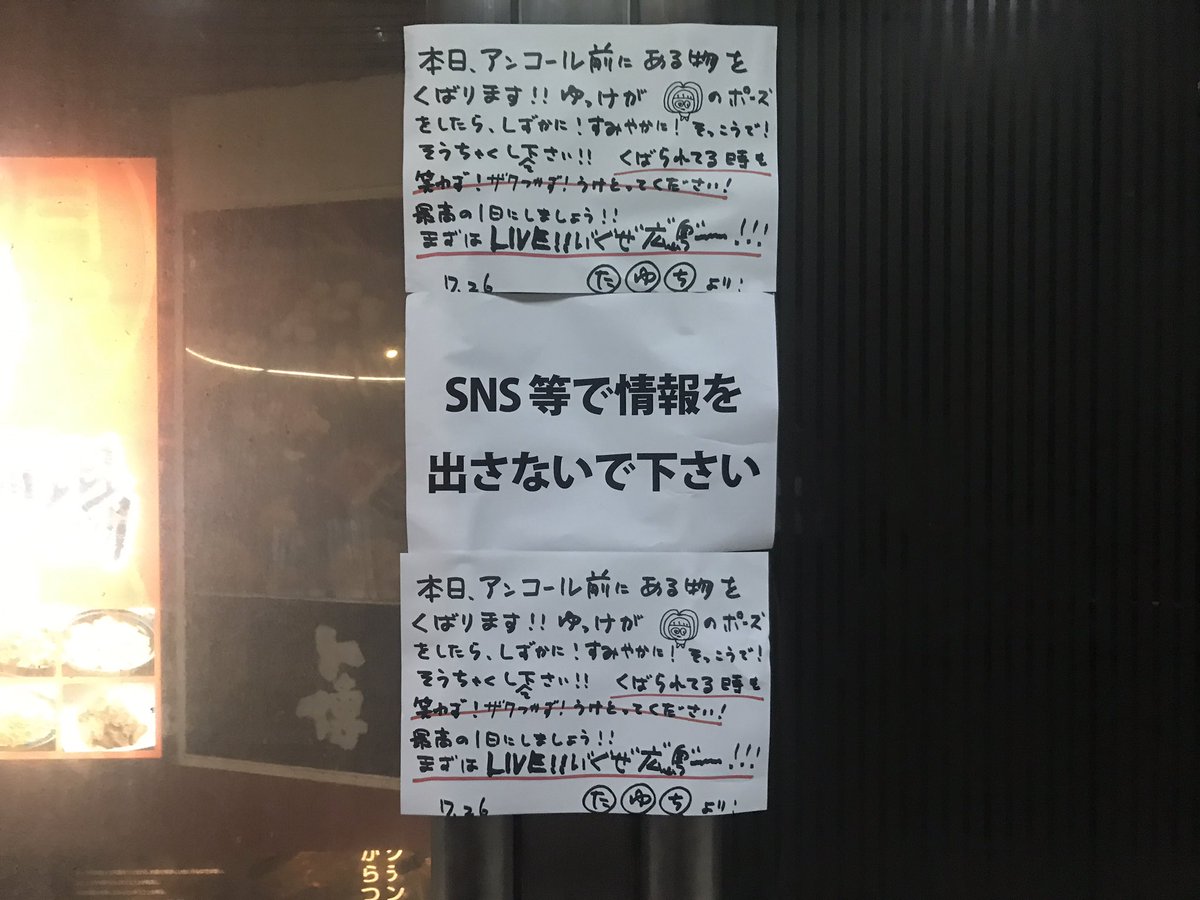 本日、アンコール前にある物を
くばります!! ゆっけが のポーズ
をしたら、しずかに!すみやかに!そっこうで!
そうちゃくし下さい!! くばられてる時も
笑わず!ザワつかず!うけとってください!
最高の1日にしましょう!!
まずはLIVE!!いくぜ広島ー!!!
12.26 た ゆ ち より!
SNS 等で情報を
出さないで下さい
本日、アンコール前にある物を
くばります!! ゆっけが のポーズ
をしたら、しずかに!すみやかに!そっこうで!
そうちゃくし下さい!! くばられてる時も
笑わず!ザワつかず!うけとってください!
最高の1日にしましょう!!
まずはLIVE!!いくぜ広島ー!!!
12.26 た ゆ ち より!